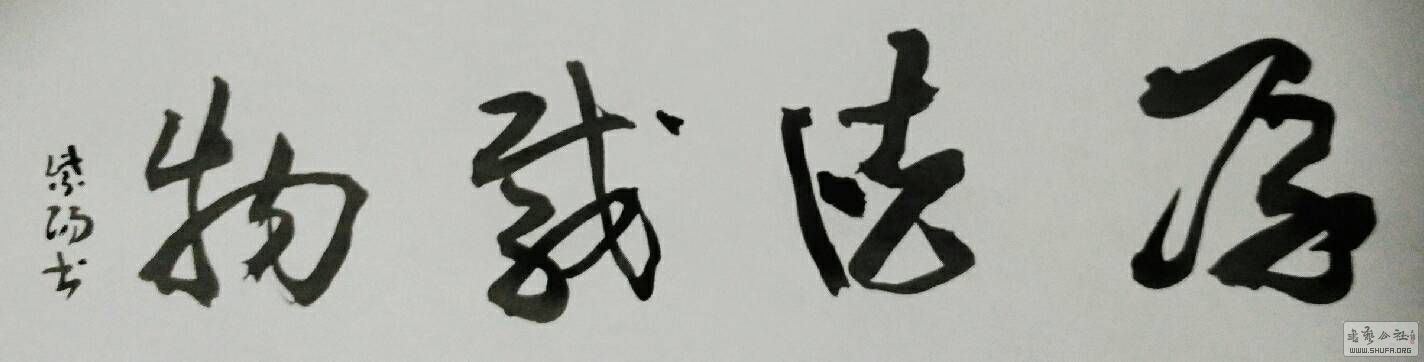 厚德载物
紫阳书
书艺公社
WWW.SHUFA.ORG